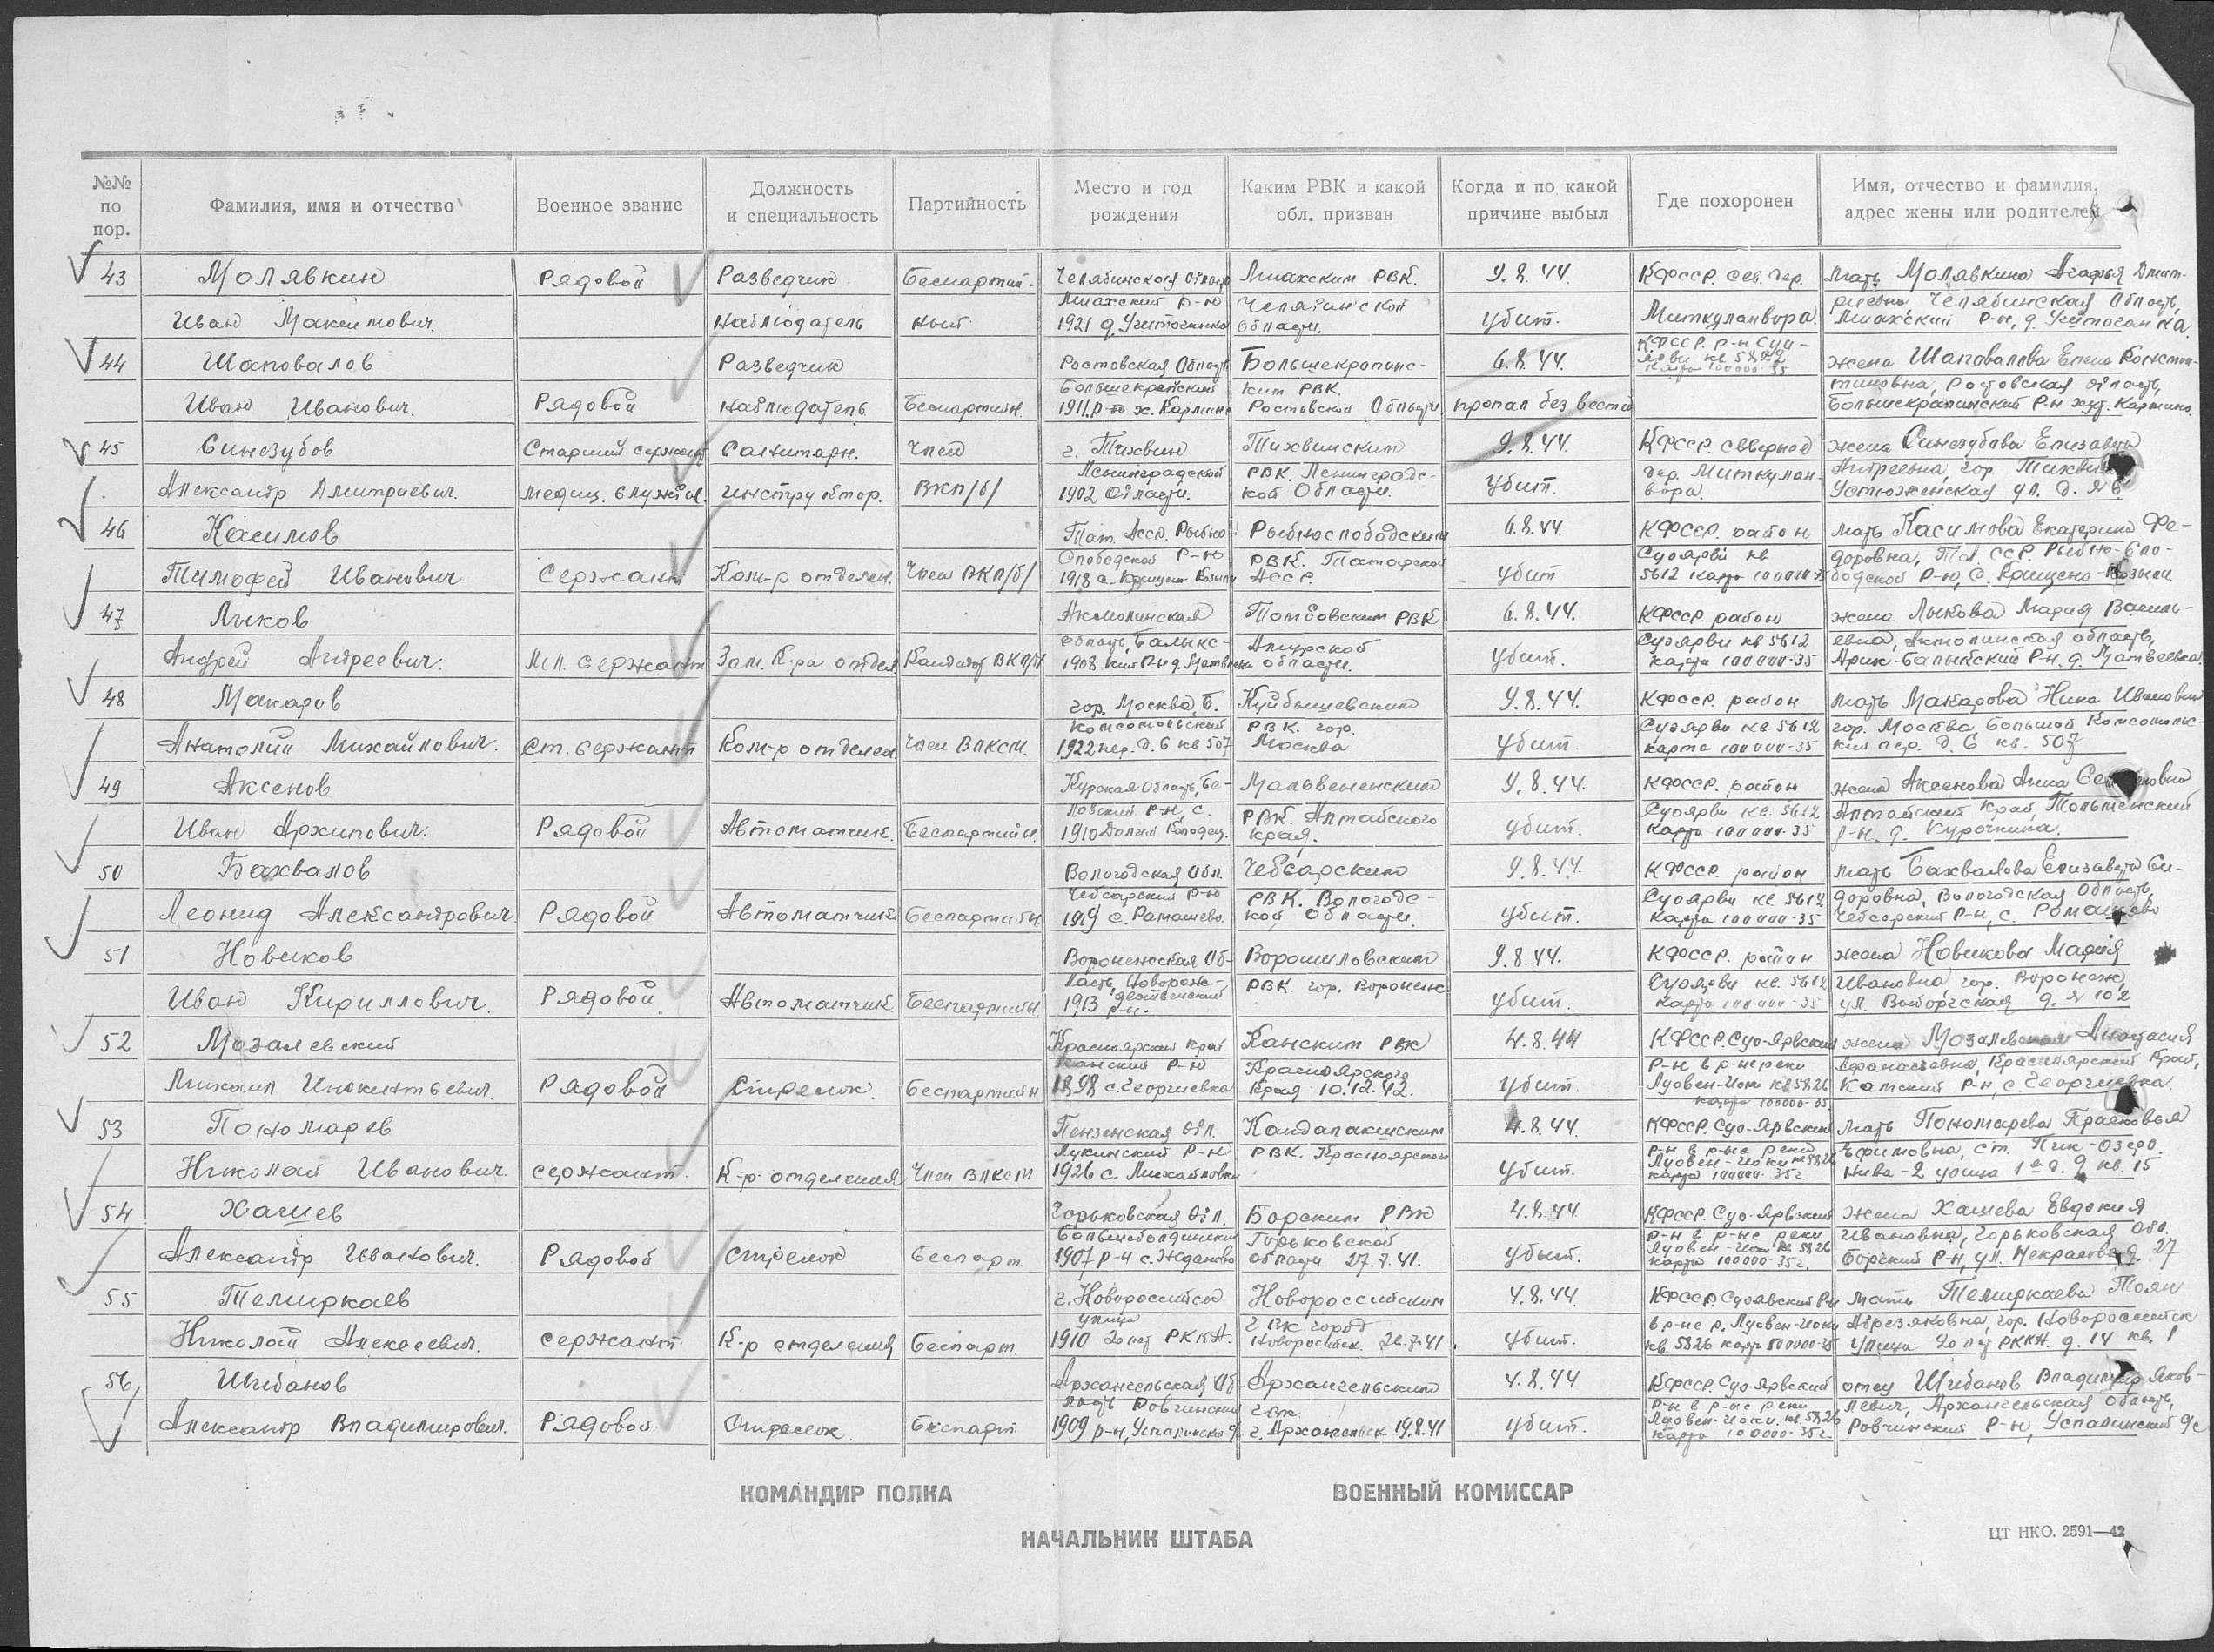 №№ по пор.
Фамилия, имя и отчество
Военное звание
Должность и специальность
Партийность
Место и год рождения
Каким РВК и какой обл. призван
Когда и по какой причине выбыл
Где похоронен
Имя, отчество и фамилия, адрес жены или родителей
43 Молявкин Рядовой Разведчик Беспартий- Челябинская Миахским РВК. 9.8.44. КФССР. сев. Мать Молявкина Агафья Дмит-
Миахский р-н Челябинской риевна Челябинская Область,
Иван Максимович. наблюдатель ный 1921 области. убит. Миткуланвора. Миахский р-н, д.
44 Шаповалов Разведчик Ростовская Область Большекрепинс- 6.8.44. КФССР. р-н Суо- жена Шаповалова Елена Констан-
ярви кв 5822 карта 100000-35
Большекрепинский ким РВК. тиновна, Ростовская область,
Иван Иванович. Рядовой наблюдатель Беспартийн. 1911 р-н х. Ростовской Области пропал без вести Большекрепинский р-н хут.
45 Синезубов Старший сержант Санитарн. Член г. Тихвин Тихвинским 9.8.44. КФССР. северное жена Синезубова Елизавета
Ленинградской РВК. Ленинградс- дер. Миткулан- Андреевна, гор. Тихвин
Александр Дмитриевич. медиц. службы. инструктор. ВКП/б/ 1902 Области. кой Области. убит. вора. Устюженская ул. д. №
46 Касимов Тат. Асср. Рыбно- Рыбнослободским 6.8.44 КФССР. район мать Касимова Екатерина Фе-
Слободской р-н РВК. Татарской Суоярви кв доровна, ССР Рыбно-Сло-
Тимофей Иванович. Сержант Ком-р отделен. Член ВКП/б/ 1918 с. АССР. убит 5612 карта 100000-35 бодской р-н, с. Крещено-Козыли
47 Лыков Акмолинская Тамбовским РВК. 6.8.44. КФССР район жена Лыкова Мария Василь-
область, Балыкс- Амурской Суоярви кв 5612 евна, Акмолинская область,
Андрей Андреевич. Мл. сержант Зам. К-ра отдел Кандидат ВКП/б/ 1908 кий р-н д. области. убит. карта 100000-35 Арык-Балыкский р-н. д. Матвеевка.
48 Макаров гор. Москва, Б. Куйбышевским 9.8.44. КФССР. район мать Макарова Нина Ивановна
Комсомольский РВК. гор. Суоярви кв 5612 гор. Москва Большой Комсомольс-
Анатолий Михайлович. Ст. сержант Ком-р отделен. Член ВЛКСМ. 1922 пер. д. 6 кв 507 Москва убит. карта 100000-35 кий пер. д. 6 кв. 507
49 Аксенов Курская Область, Бе- 9.8.44. КФССР. район жена Аксенова Анна
ловский р-н, с. РВК. Алтайского Суоярви кв. 5612 Алтайский край,
Иван Архипович. Рядовой Автоматчик. Беспартийн. 1910 Долгий Колодец. края. убит. карта 100000-35 р-н. д. Курочкина.
50 Бахвалов Вологодская Обл. Чебсарским 9.8.44. КФССР. район мать Бахвалова Елизавета Си-
Чебсарский р-н РВК. Вологодс- Суоярви кв 5612 доровна, Вологодская Область
Леонид Александрович. Рядовой Автоматчик Беспартийн 1919 с. Ромашево. кой Области. убит. карта 100000-35 Чебсарский р-н, с. Ромашево
51 Новиков Воронежская Об- Ворошиловским 9.8.44. КФССР. район жена Новикова Мария
ласть, РВК. гор. Воронеж. Суоярви кв. 5612 Ивановна гор. Воронеж,
Иван Кириллович. Рядовой Автоматчик. Беспартийн. 1913 р-н. убит. карта 100000-35 ул. Выборгская д. № 102
52 Мозалевский Красноярский край Канским РВК 4.8.44 КФССР. Суо-Ярвский жена Мозалевская Анастасия
Канский р-н Красноярского р-н в р-не реки Афанасьевна, Красноярский Край,
Михаил Инокентьевич. Рядовой Стрелок. Беспартийн 1898 с. Георгиевка Края 10.12.42. убит. Луовен-Иоки кв 5826 Канский р-н, с. Георгиевка.
карта 100000-35.
53 Пономарев Пензенская Обл. Кандалакшским 4.8.44. КФССР. Суо-Ярвский мать Пономарева Прасковья
Лукинский р-н РВК. Красноярского р-н в р-не реки Ефимовна, ст. Пинк-Озеро.
Николай Иванович. сержант. К-р отделения Член ВЛКСМ 1926 с. Михайловка убит. Луовен-Иоки кв 5826 карта 100000-35г. Нива-2 улица 1ая д. 9 кв. 15
54 Хашев Горьковская Обл. Борским РВК 4.8.44 КФССР. Суо-Ярвский жена Хашева Евдокия
Большеболдинский Горьковской р-н в р-не реки Ивановна, Горьковская Обл.
Александр Иванович. Рядовой Стрелок Беспарт. 1907 р-н с. Жданово области 27.7.41. убит. Луовен-Иоки кв 5826 карта 100000-35г. Борский р-н, ул. Некрасова д. 27
55 Темиркаев г. Новороссийск Новороссийским 4.8.44. КФССР. Суоявский р-н мать Темиркаева
улица ГВК город в р-не р. Луовен-Иоки гор. Новороссийск
Николай Алексеевич. сержант. К-р отделения Беспарт. 1910 20 лет РККА. Новоросийск 26.7.41 убит. кв. 5826 карта 100000-35 Улица 20 лет РККА. д. 14 кв. 1
56 Шибанов Архангельская Об- Архангельским 4.8.44 КФССР. Суо-Ярвский отец Шибанов Владимир Яков-
ласть Ровдинский ГВК р-н в р-не реки левич, Архангельская Область,
Александр Владимирович. Рядовой Стрелок. Беспарт. 1909 р-н, г. Архангельск 19.8.41 убит. Луовен-Иоки. кв. 5826 карта 100000-35г. Ровдинский р-н, с/с
КОМАНДИР ПОЛКА
ВОЕННЫЙ КОМИССАР
НАЧАЛЬНИК ШТАБА
ЦТ НКО. 2591—42